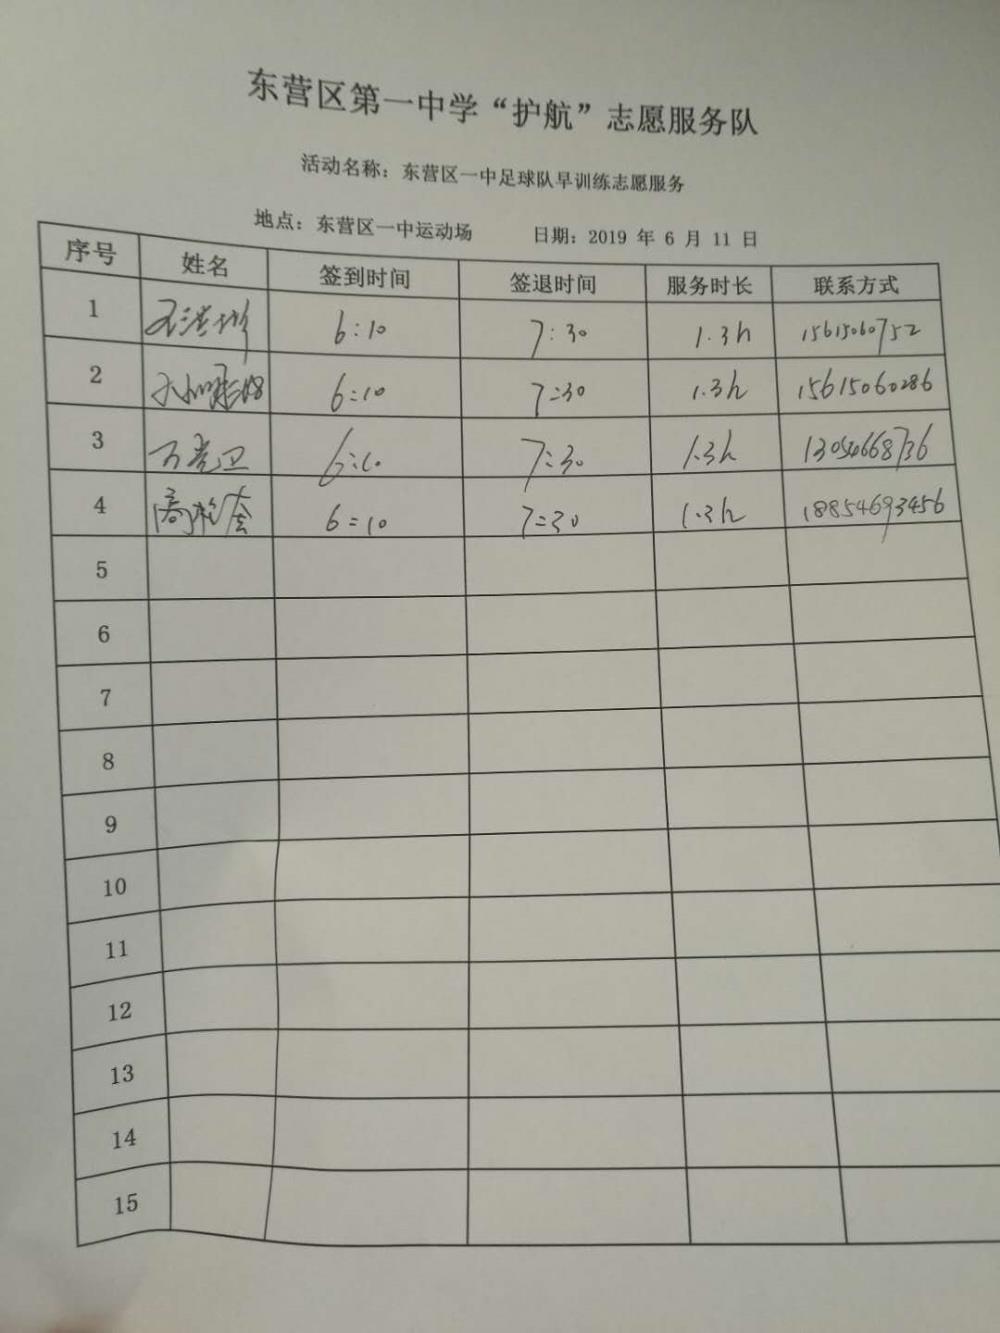 东营区第一中学“护航”志愿服务队
活动名称：东营区一中足球队早训练志愿服务
地点：东营区一中运动场 日期：2019 年 6 月 11 日
序号 姓名 签到时间 签退时间 服务时长 联系方式
1 6:10 7:30 1.3h 15615060752
2 6:10 7:30 1.3h 15615060286
3 6:10 7:30 1.3h 13054668736
4 6:10 7:30 1.3h 18854693456
5
6
7
8
9
10
11
12
13
14
15